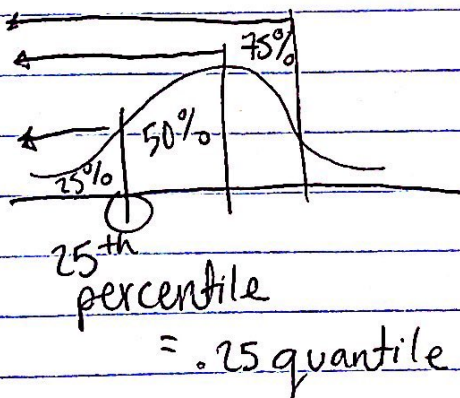 75%
50%
25%
25th
percentile
= .25 quantile